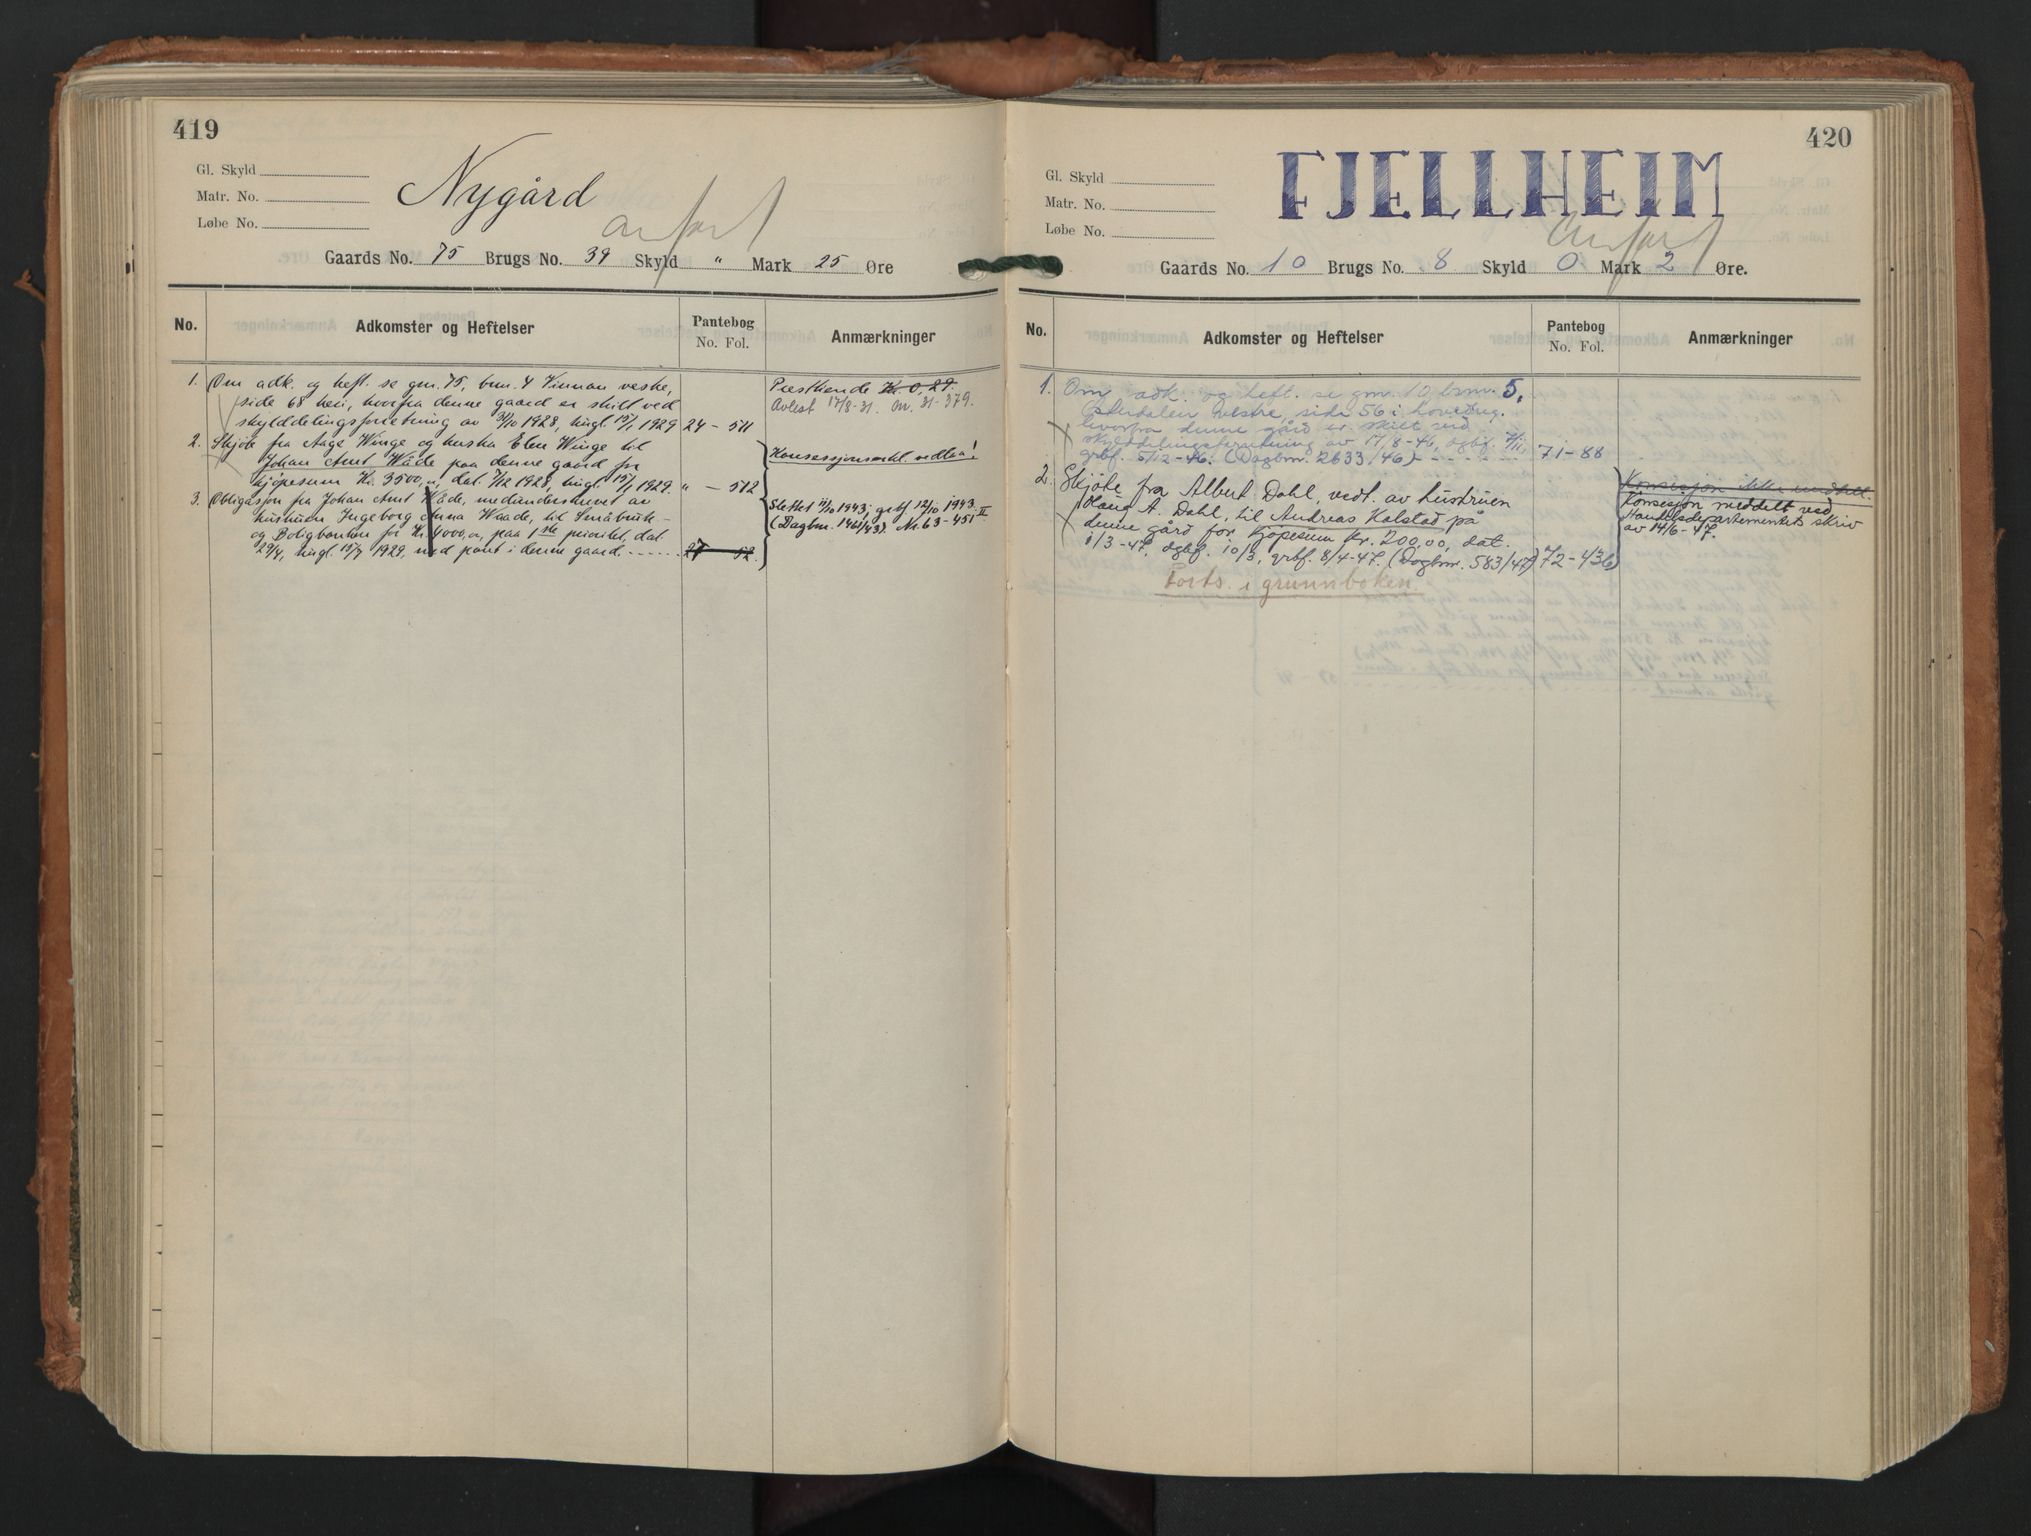 419
Gl. Skyld
Matr. No.
Løbe No.
Nygård
anført
Gaards No. 75 Brugs No. 39 Skyld " Mark 25 Øre
No.
Adkomster og Heftelser
Pantebog
No. Fol.
Anmærkninger
1. Om adk. og heft. se gnr. 75, brnr. 4 Vinnan vestre,
side 68 heri, hvorfra denne gaard er skilt ved
skylddelingsforretning av 31/10 1928, tingl. 15/1 1929 24 - 511
Prestkende Kr. 0,27.
Avløst 17/8-31. 31-379.
2. Skjøte fra Aage Winge og hustru Elen Winge til
Johan Arnt Wåde paa denne gaard for
kjøpesum Kr. 3500,00, dat. 7/12 1928, tingl. 15/1 1929. " - 512
Konsesjonserkl. vedtar!
3. Obligasjon fra Johan Arnt Wåde, medunderskrevet av
hustruen Ingeborg Anna Waade, til Småbruk-
og Boligbanken for Kr. 4000,00, paa 1ste prioritet, dat.
29/4, tingl. 15/7 1929, med pant i denne gaard. 27 - 52.
Slettet 11/10 1943, grbf 12/10 1943
(Dagbnr. 1461/43). Nr. 63-451 II
420
Gl. Skyld
Matr. No.
Løbe No.
FJELLHEIM
Anført
Gaards No. 10 Brugs No. 8 Skyld 0 Mark 2 Øre.
No.
Adkomster og Heftelser
Pantebog
No. Fol.
Anmærkninger
1. Om adk. og heft. se gnr. 10, brnr. 5,
Østerdalen Vestre, side 56 i hovedreg.
hvorfra denne gård er skilt ved
skylddelingsforretning av 17/8-46, dgbf. 7/11,
grbf. 5/12-46. (Dagbnr. 2633/46) 71-88
2. Skjøte fra Albert Dahl, vedt. av hustruen
A. Dahl, til Andreas Kolstad på
denne gård for kjøpesum kr. 200,00, dat.
1/3-47, dgbf. 10/3, grbf. 8/4-47. (Dagbnr. 583/47) 72-436
Konsesjon ikke meddelt.
Konsesjon meddelt ved
Handelsdepartementets skriv
av 14/6-47.
Forts. i grunnboken.